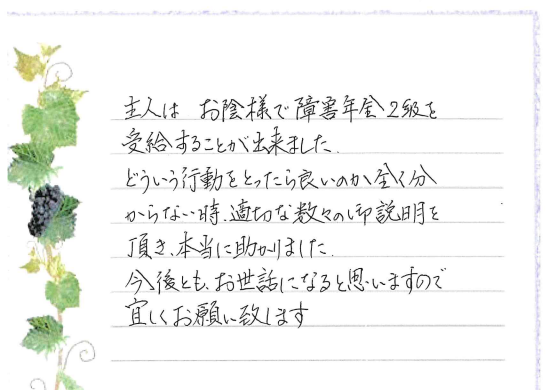 主人は お陰様で障害年金2級を
受給することが出来ました.
どういう行動をとったら良いのか全く分
からない時、適切な数々の御説明を
頂き、本当に助かりました.
今後とも、お世話になると思いますので
宜しくお願い致します